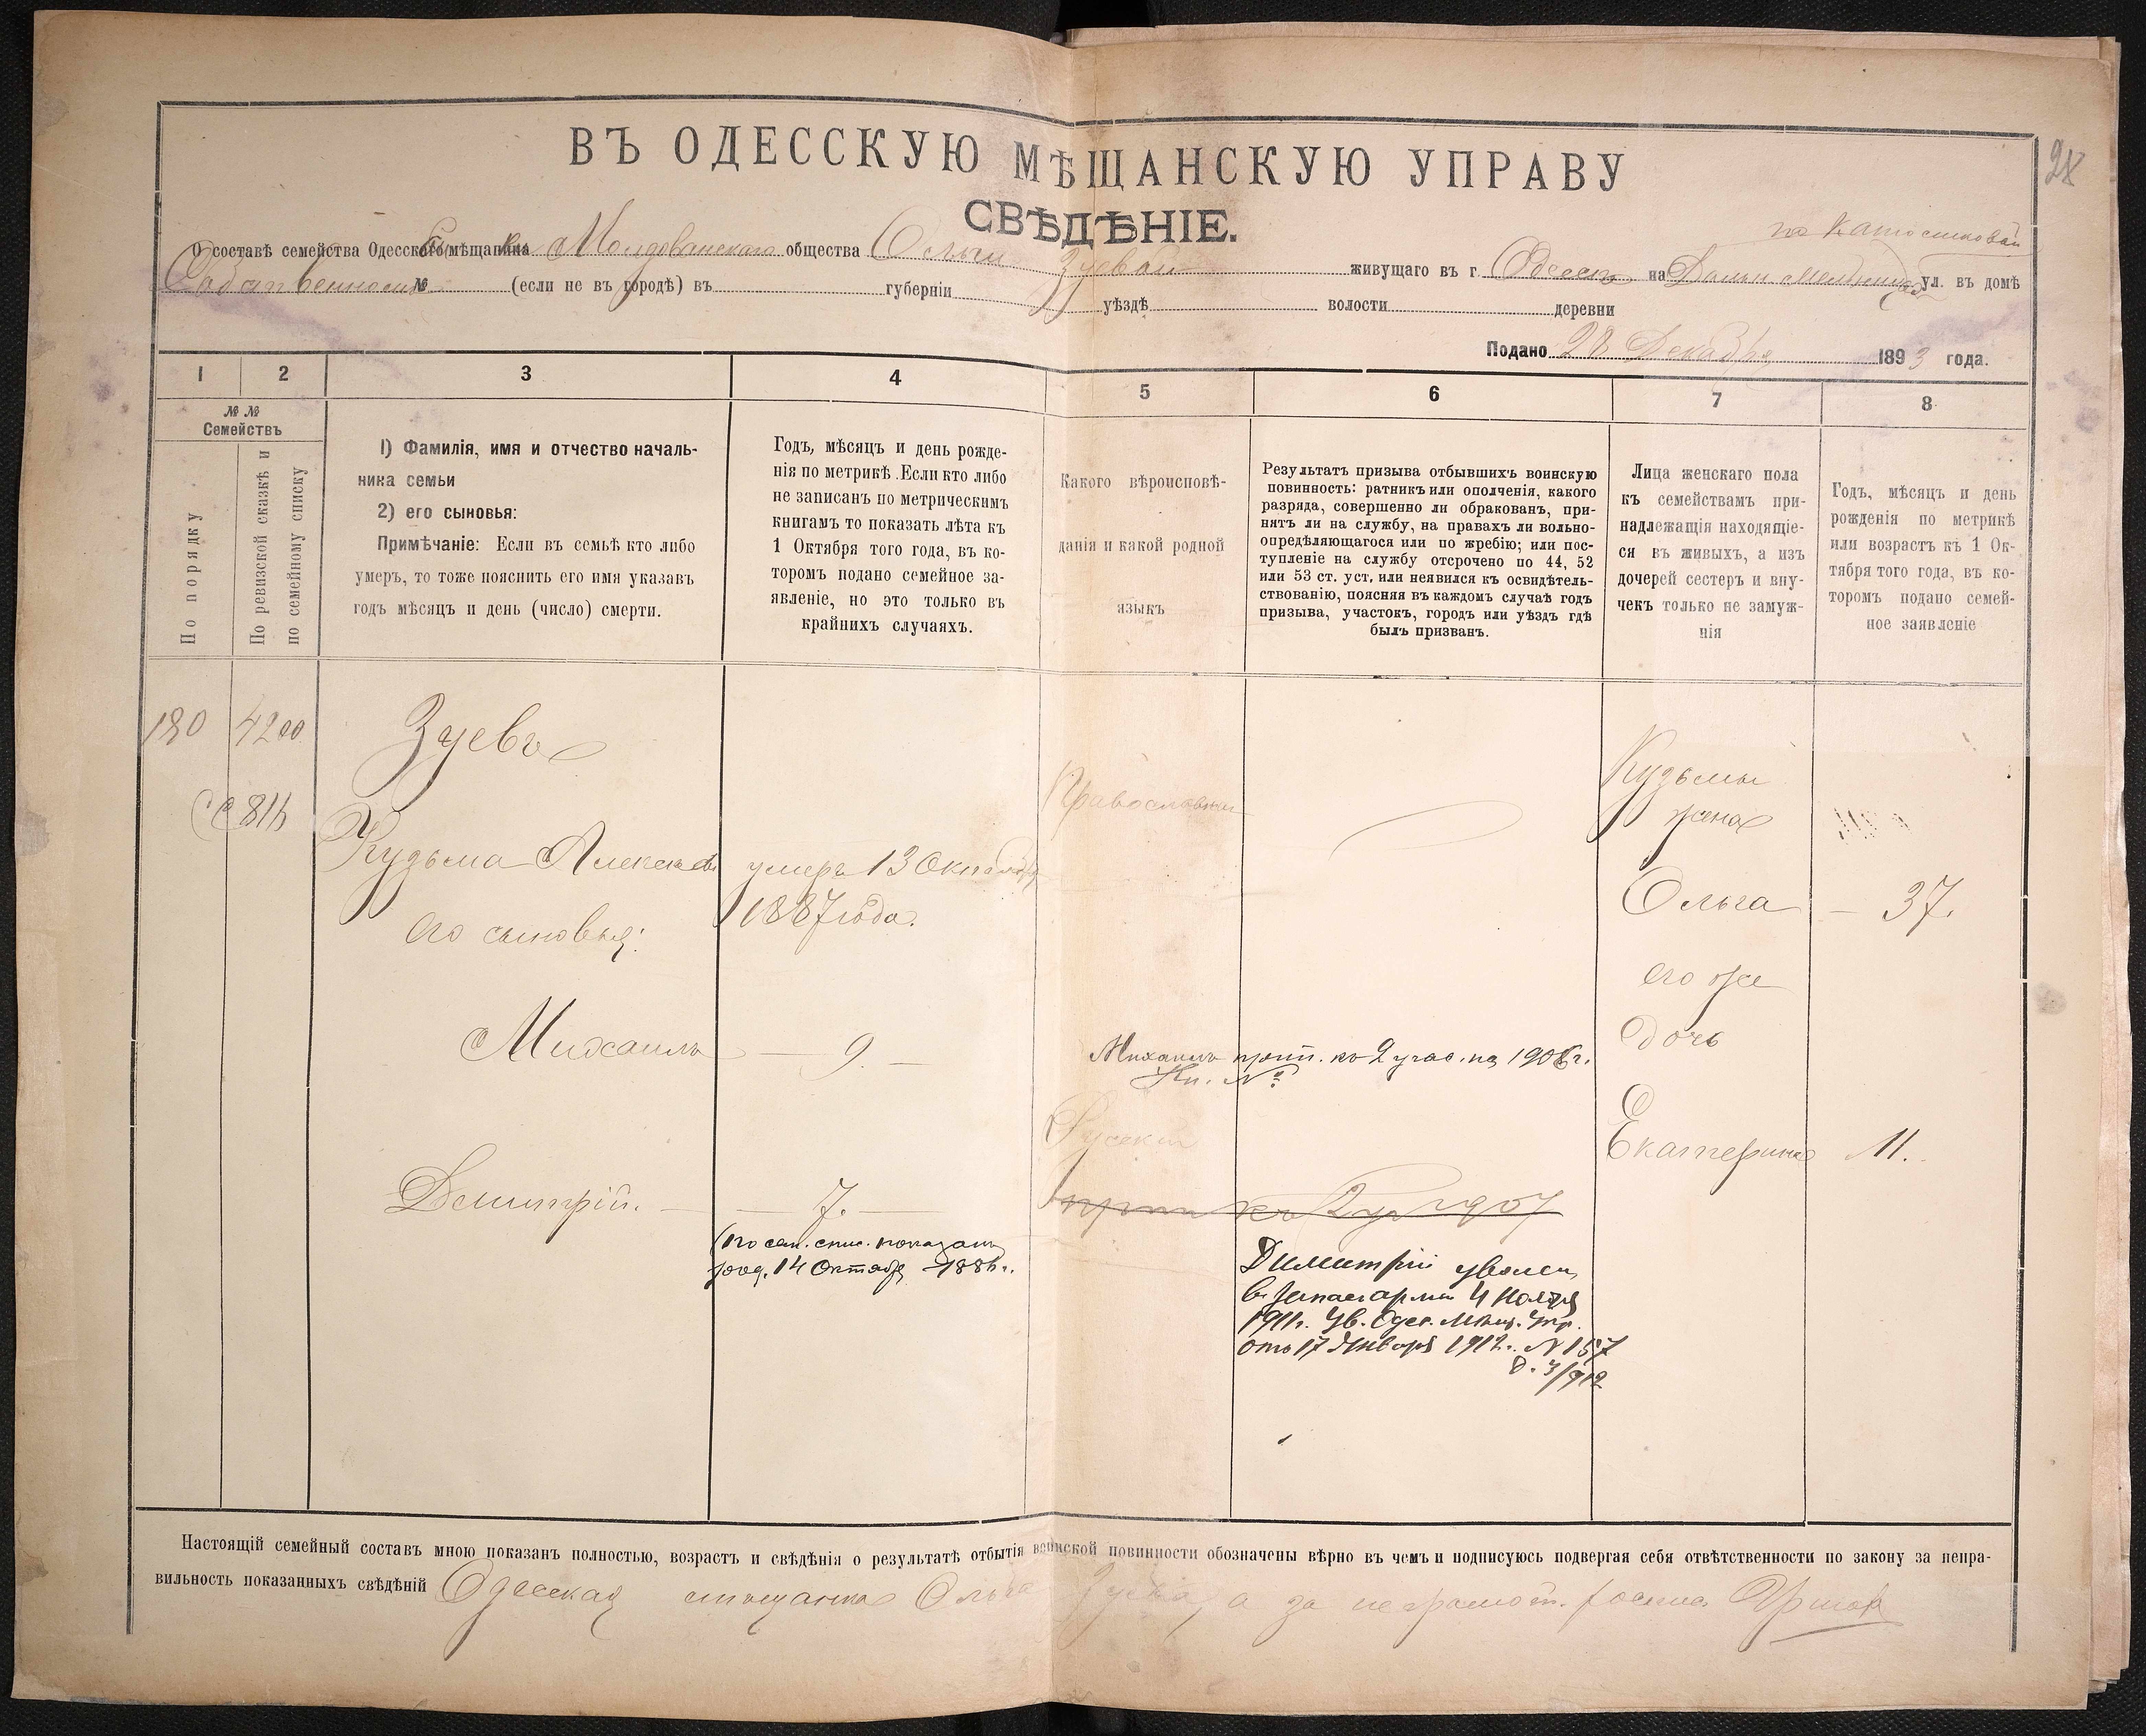 28
ВЪ ОДЕССКУЮ МѢЩАНСКУЮ УПРАВУ
СВѢДѢНІЕ.
О составѣ семейства Одесскаго мѣщанина Молдованскаго общества Ольги Зуевой живущаго въ г. Одессѣ на Дальн Мельниц ул. въ домѣ
№ (если не въ городѣ) въ губерніи уѣздѣ волости деревни
Подано 28 Декабря 1893 года.
1 2 3 4 5 6 7 8
№ №
Семействъ
По порядку
По ревизской сказкѣ и
по семейному списку
1) Фамилія, имя и отчество началь-
ника семьи
2) его сыновья:
Примѣчаніе: Если въ семьѣ кто либо
умеръ, то тоже пояснить его имя указавъ
годъ мѣсяцъ и день (число) смерти.
Годъ, мѣсяцъ и день рожде-
нія по метрикѣ. Если кто либо
не записанъ по метрическимъ
книгамъ то показать лѣта къ
1 Октября того года, въ ко-
торомъ подано семейное за-
явленіе, но это только въ
крайнихъ случаяхъ.
Какого вѣроисповѣ-
данія и какой родной
языкъ
Результатъ призыва отбывшихъ воинскую
повинность: ратникъ или ополченія, какого
разряда, совершенно ли обракованъ, при-
нятъ ли на службу, на правахъ ли вольно-
опредѣляющагося или по жребію; или пос-
тупленіе на службу отсрочено по 44, 52
или 53 ст. уст, или неявился къ освидѣтель-
ствованію, поясняя въ каждомъ случаѣ годъ
призыва, участокъ, городъ или уѣздъ гдѣ
былъ призванъ.
Лица женскаго пола
къ семействамъ при-
надлежащія находящіе-
ся въ живыхъ, а изъ
дочерей сестеръ и вну-
чекъ только не замуж-
нія
Годъ, мѣсяцъ и день
рожденія по метрикѣ
или возрастъ къ 1 Ок-
тября того года, въ ко-
торомъ подано семей-
ное заявленіе
180 4200
Зуевъ
Кузьма
умеръ 13 Октября
1887 года.
его сыновья:
Михаилъ — 9. —
Димитрій. — 7. —
(по сем. спис. показанъ
род. 14 Октября 1886 г.
Православный
Русскій
Михаилъ прип. къ 2 учас. на 1906 г.
Кн. №
прип къ 2 уч 1907
Димитрій уволен
в запас армии 4 Ноября
1911 г. Ув. Одес. Мѣщ. Упр.
отъ 17 Января 1912 г. N 157
Д. 3/912
Кузьмы
жена
Ольга — 37.
его же
дочь
Екатерина 11.
Настоящій семейный составъ мною показанъ полностью, возрастъ и свѣдѣнія о результатѣ отбытія воинской повинности обозначены вѣрно въ чемъ и подписуюсь подвергая себя отвѣтственности по закону за непра-
вильность показанныхъ свѣдѣній Одесская мѣщанка Ольга Зуева, а за неграмотн.